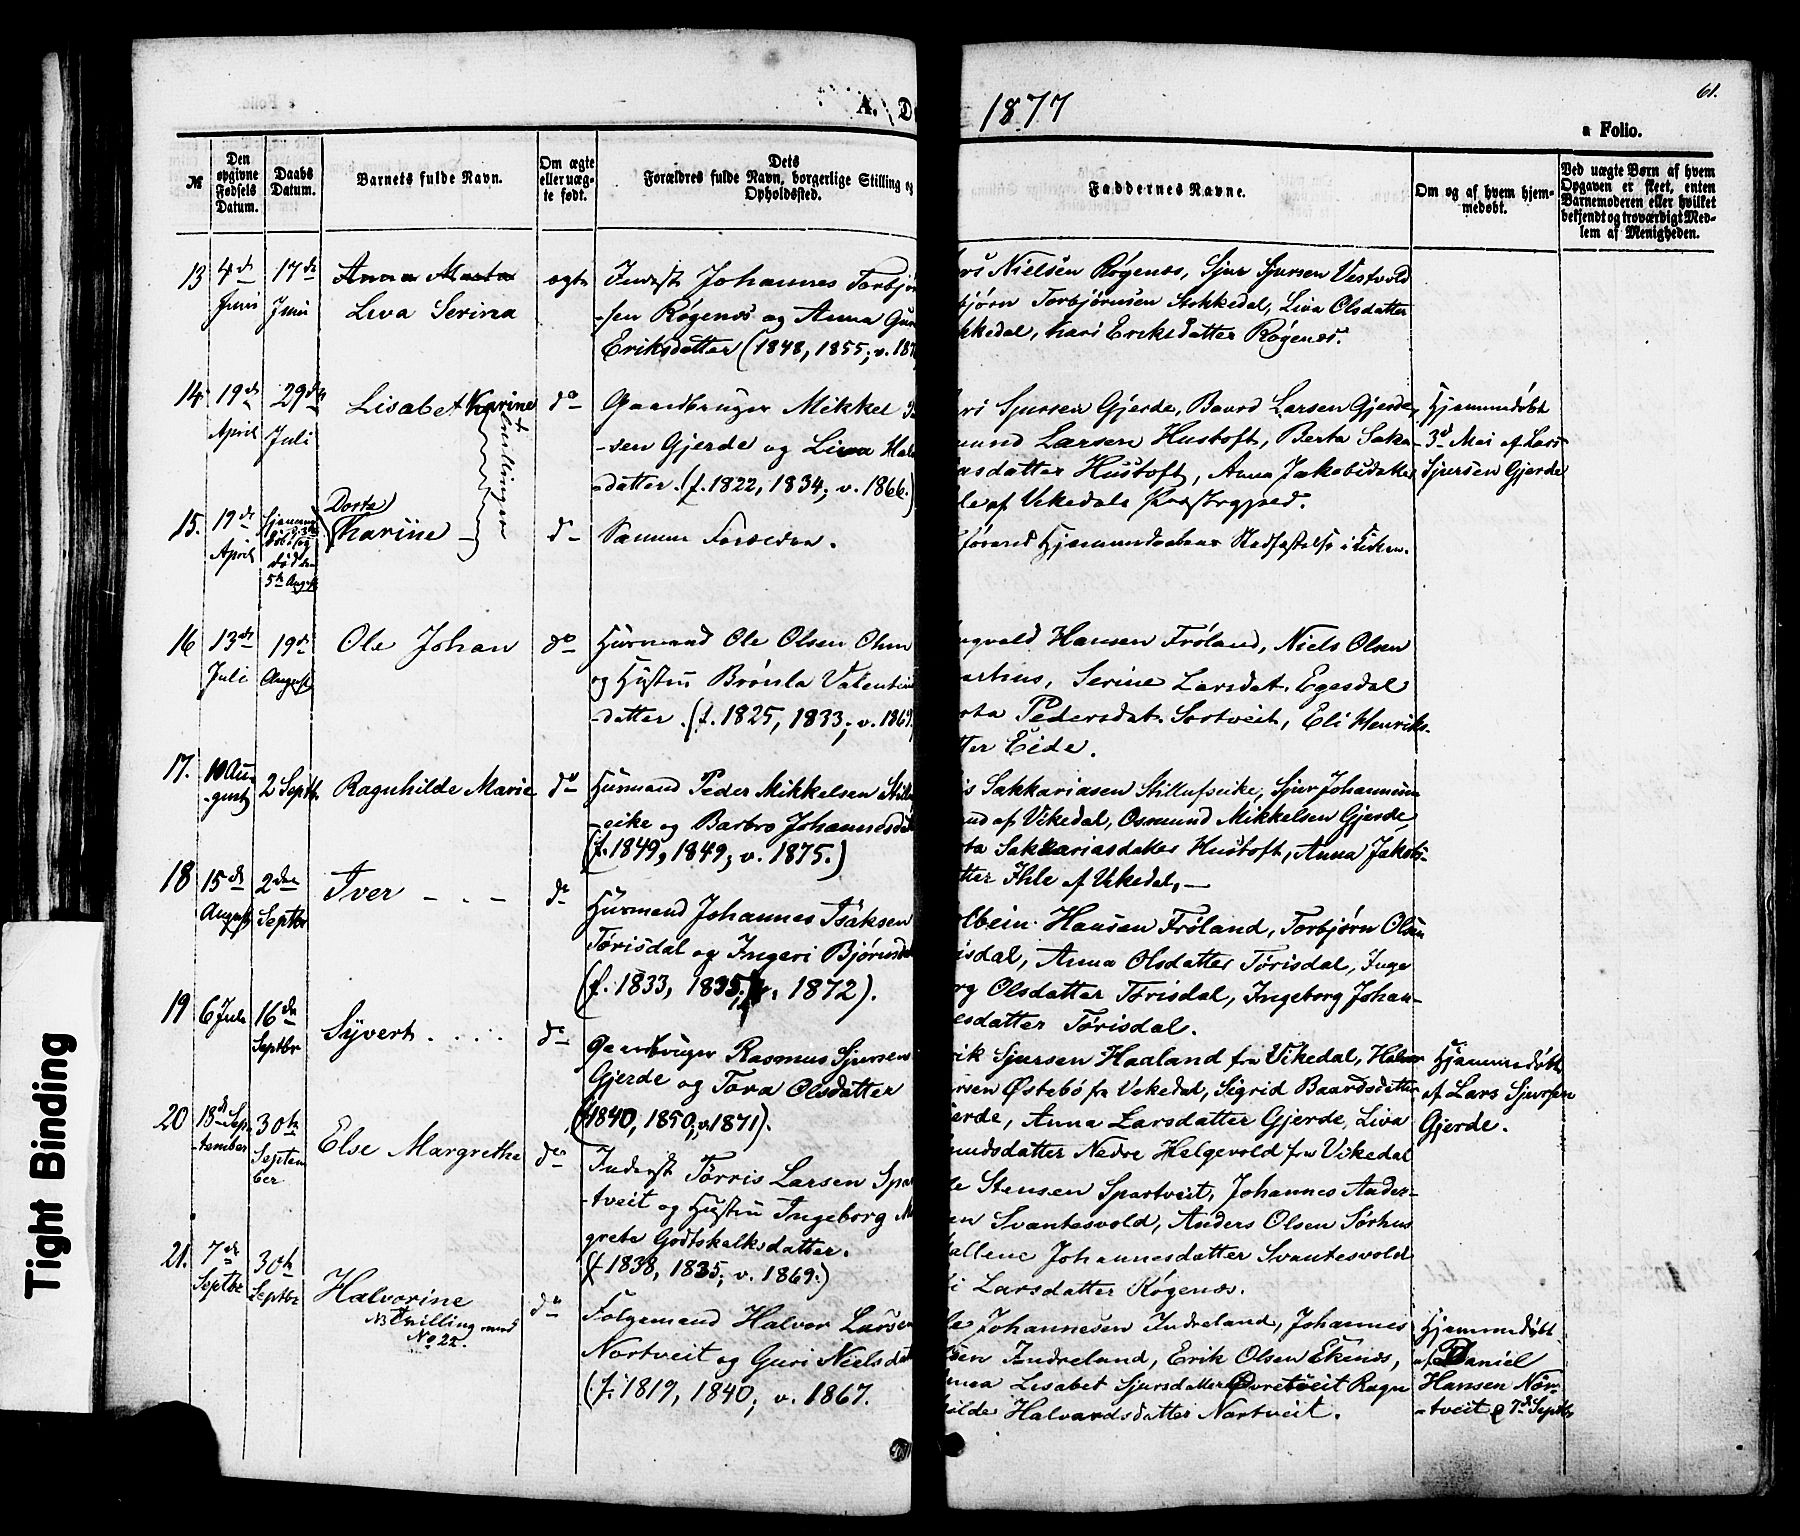 61.
A. D
1877
a Folio.
№
Den opgivne Fødsels Datum.
Daabs Datum.
Barnets fulde Navn.
Om ægte eller uægte født.
Dets
Forældres fulde Navn, borgerlige Stilling og
Opholdssted.
Faddernes Navne.
Om og af hvem hjemmedøbt.
Ved uægte Børn af hvem
Opgaven er skeet, enten
Barnemoderen eller hvilket
bekjendt og troværdigt Med-
lem af Menigheden.
13 4de Juni 17de Juni
Anna Marta
Liva Serina
ægte
Inderst Johannes Torbjør
-sen Røgenæs og Anna Gur
Eriksdatter (1848, 1855, v. 187
Nielsen Røgenæs, Sjur Sjursen Vestvold
bjørn Torbjørnsen Stokkedal, Liva Olsdatter
kkedal, Kari Eriksdatter Røgenæs.
14 19de April 29de Juli
Lisabet Karine
Tvillinger
do
Gaardbruger Mikkel
-sen Gjerde og Liva Hal
-datter. (f. 1822, 1834, v. 1866.)
Sjursen Gjerde, Baard Larsen Gjerde,
mund Larsen Hustoft, Berta Saka-
iasdatter Hustoft, Anna Jakobsdatter
le af Vikedals Præstegjed.
Hjemmedøbt
3de Mai af Lars
Sjursen Gjerde
15. 19de April
Hjemme-
døbt og
død den
5te August
Dorte
Karine
do
Samme Forældre.
førend Hjemmedaabens Stadfæstelse i Kirken.
16 13de Juli 19de August
Ole Johan
do
Husmand Ole Olsen
og Hustru Brønla Valentin
-datter. (f. 1825, 1833, v. 1869.
ngvald Hansen Frøland, Niels Olsen
arhus, Serine Larsdat. Egesdal
rta Pedersdat. Sortveit, Eli Henriks-
tter Eide.
17. 10 Au-
-gust 2 Septb.
Ragnhilde Marie
do
Husmand Peder Mikkelsen
-eike og Barbro Johannesdat
(f. 1849, 1849, v. 1875.)
is Sakkariasen Stillufseike, Sjur Johannesen
af Vikedal, Osmund Mikkelsen Gjerde,
ta Sakkariasdatter Hustoft, Anna Jakobs-
tter Ihle af Vikedal, —
18 15de August 2den Septbr
Iver - . -
do
Husmand Johannes Isaksen
Tørisdal og Ingeri Bjørnsda
(f. 1833, 1835, v. 1872).
olbein Hansen Frøland, Torbjørn Olsen
isdal, Anna Olsdatter Tørisdal, Inge
rg Olsdatter Tørisdal, Ingeborg Johan-
esdatter Tørisdal.
19 6 Juli 16de Septbr
Syvert . . . .
do
Gaardbruger Rasmus Sjursen
Gjerde og Tora Olsdatter
(1840, 1850, v. 1871).
rik Sjursen Haaland fra Vikedal, Halvor
rsen Østebø fra Vikedal, Sigrid Baardsdatter
erde, Anna Larsdatter Gjerde, Liva
mundsdatter Nedre Helgevold fra Vikedal
Hjemmedøbt
af Lars Sjursen
Gjerde.
20 18de Sep-
-tember 30te Septem
ber
Else Margrethe
do
Inderst Tørris Larsen Spa
-tveit og Hustru Ingeborg M
grete Godtskalksdatter.
(f. 1838, 1835, v. 1869.)
le Stensen Spartveit, Johannes Ander-
en Svantesvold, Anders Olsen Sørhus
allene Johannesdatter Svantesvold
i Larsdatter Røgenæs.
21. 7de Septbr 30te Septbr
Halvorine
NB Tvilling med
No. 22.
do
Følgemand Halvor Larse
Nortveit og Guri Nielsdat
(f. 1819, 1840, v. 1867.
le Johannesen Indreland, Johannes
sen Indreland, Erik Olsen Ekenæs,
nna Lisabet Sjursdatter Øvretveit Ragn
hilde Halvardsdatter Nortveit.
Hjemmedøbt
af Daniel
Hansen Nor-
-tveit 7de Septbr
Tight Binding